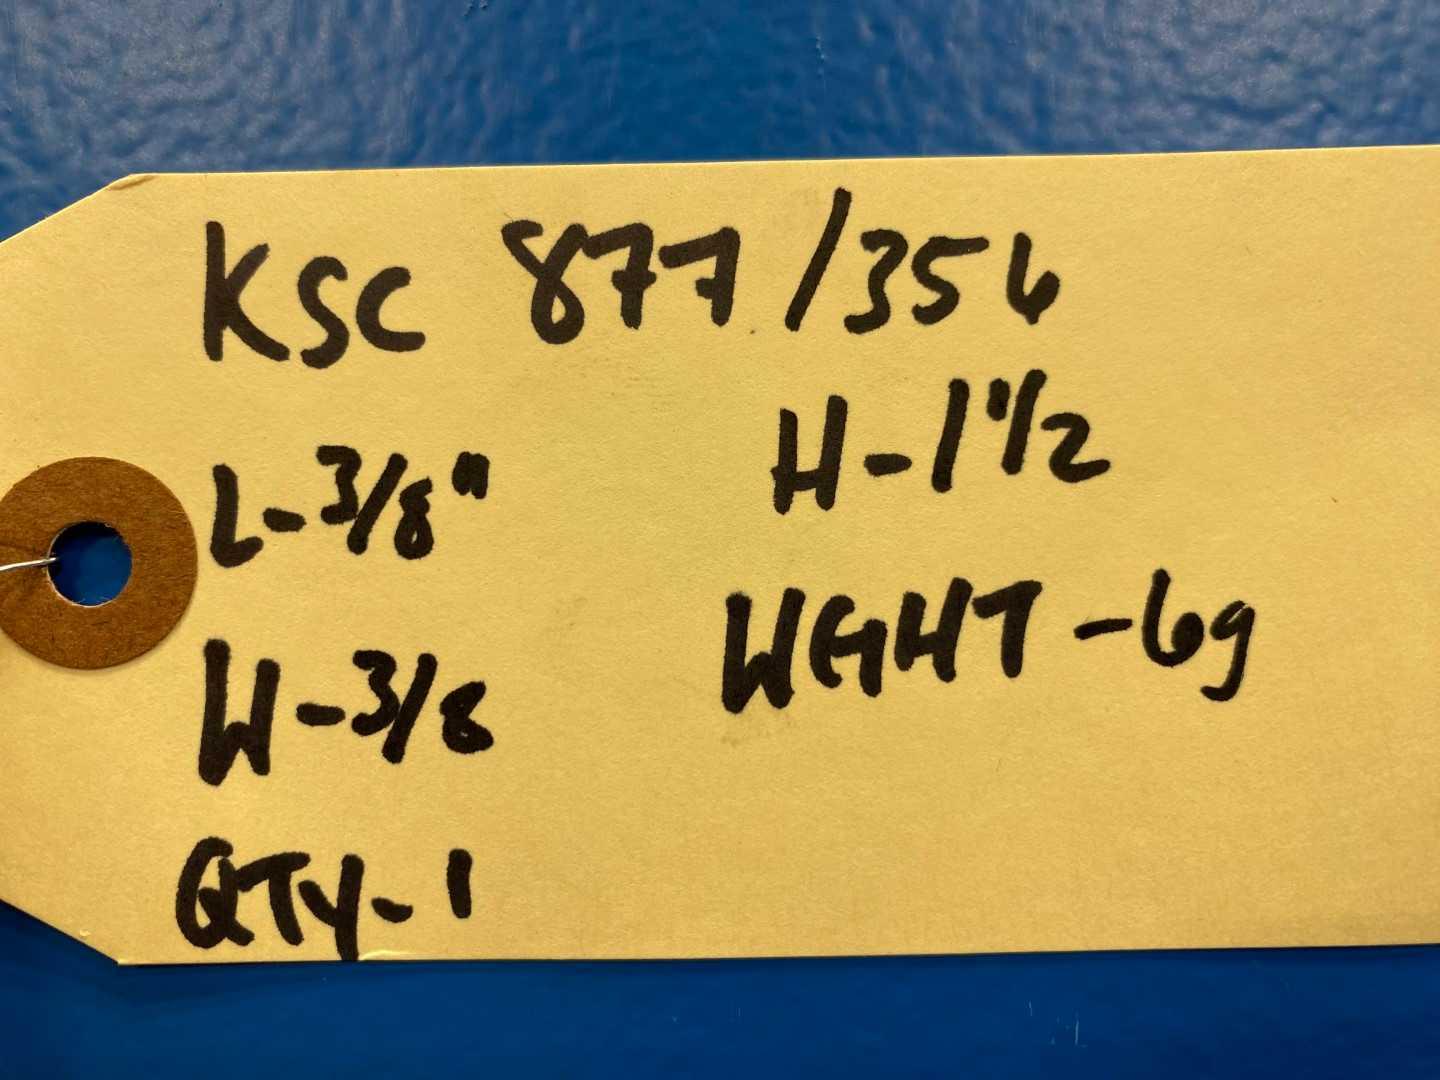 KSC 877/356
L-3/8" H-1"1/2
W-3/8 WGHT-6g
QTY-1